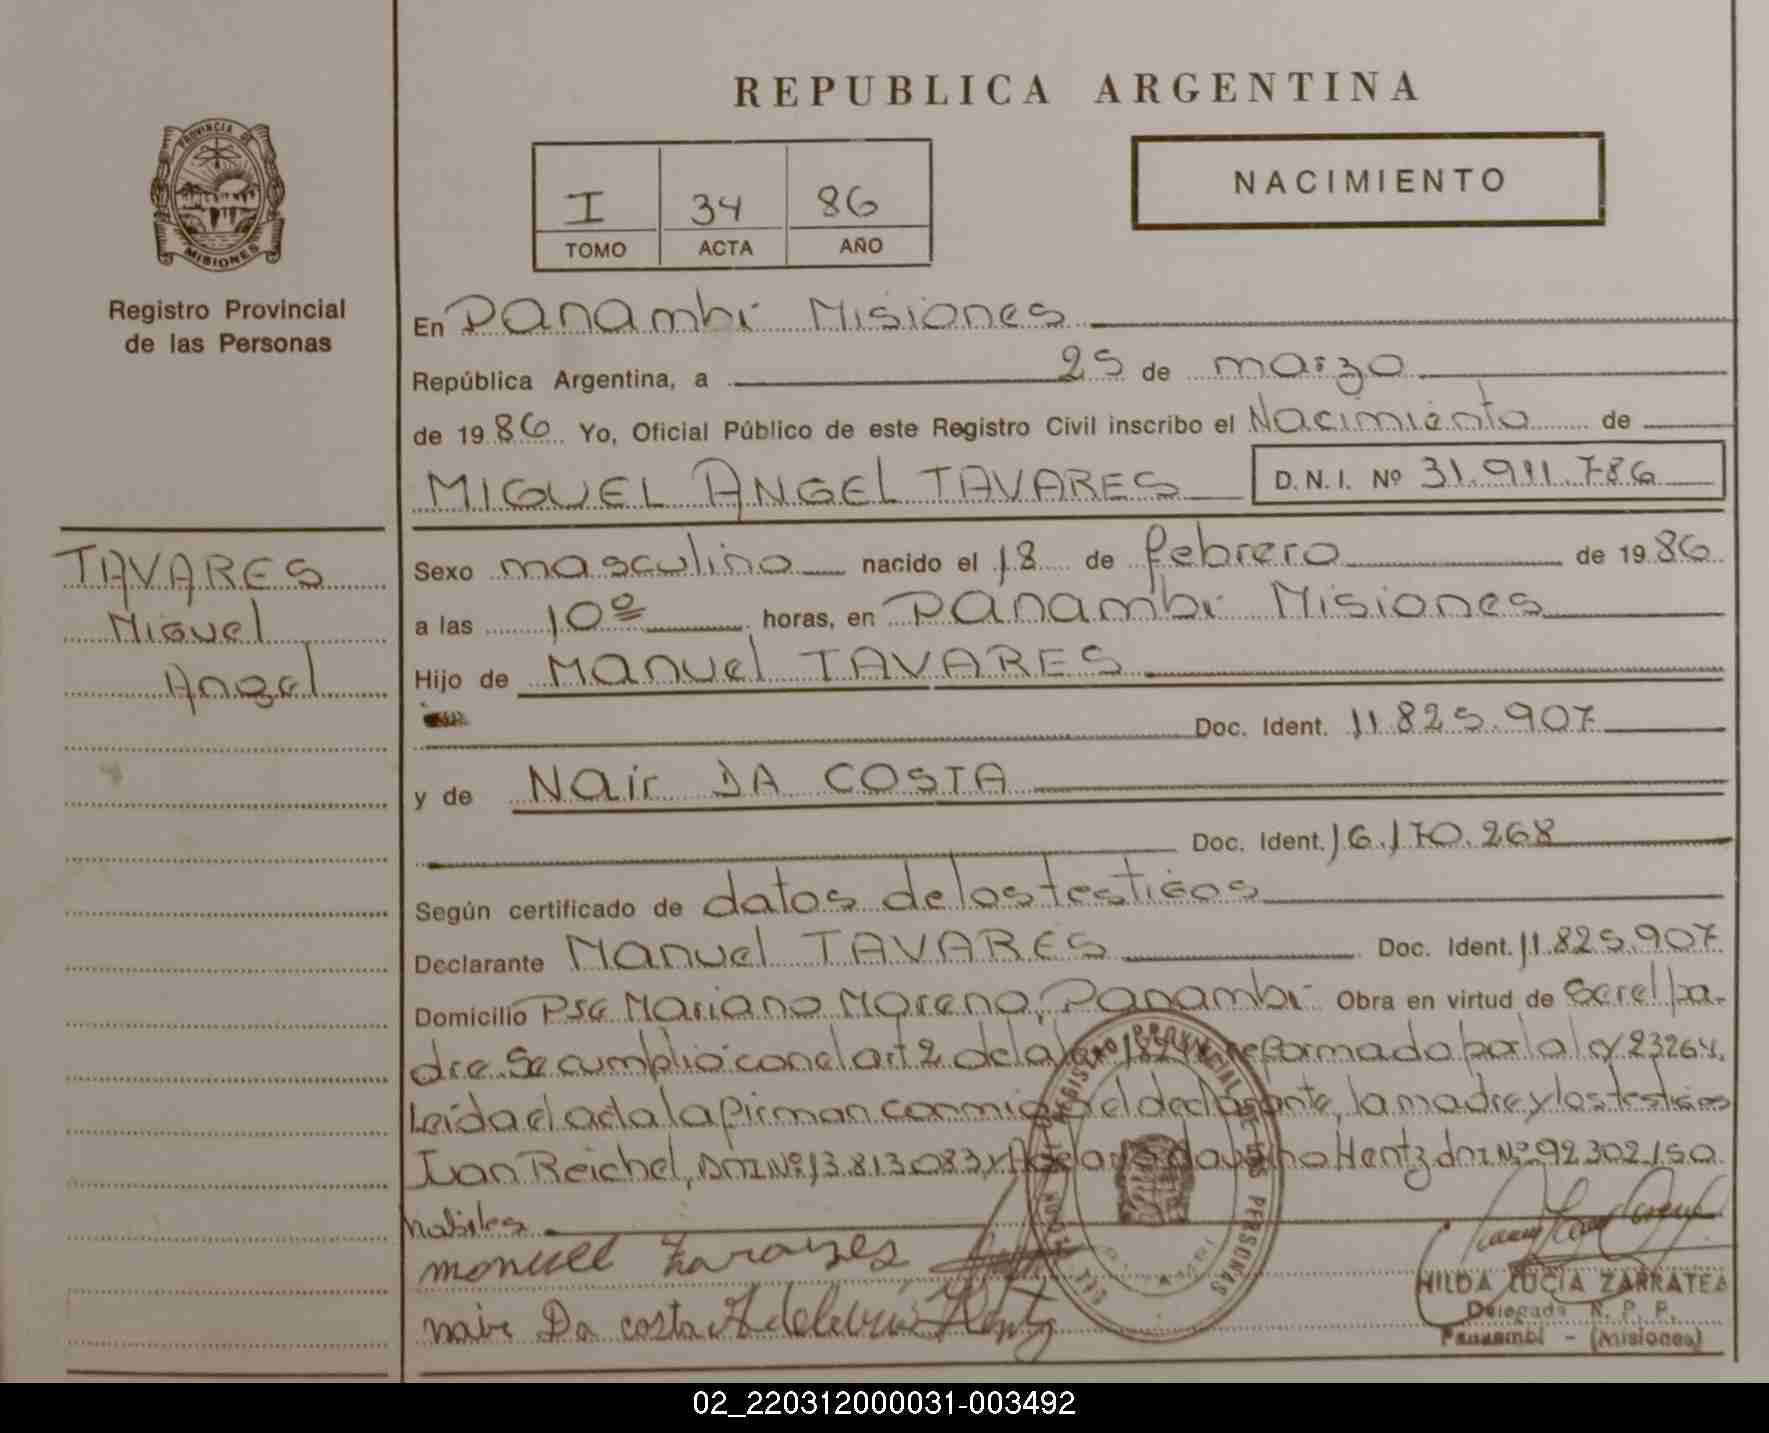 REPUBLICA ARGENTINA
PROVINCIA DE
MISIONES
Registro Provincial
de las Personas
I 34 86
TOMO ACTA AÑO
NACIMIENTO
En Panambi Misiones
República Argentina, a 25 de marzo
de 1986 Yo, Oficial Público de este Registro Civil inscribo el Nacimiento de
MIGUEL ANGEL TAVARES D.N.I. Nº 31.911.786
TAVARES
Miguel
Angel
Sexo masculino nacido el 18 de febrero de 1986
a las 10º horas, en Panambi Misiones
Hijo de Manuel TAVARES
Doc. Ident. 11.825.907
y de Nair DA COSTA
Doc. Ident. 16.170.268
Según certificado de datos de los testigos
Declarante Manuel TAVARES Doc. Ident. 11.825.907
Domicilio Pje Mariano Moreno, Panambi Obra en virtud de Ser el pa-
dre. Se cumplió con el art 2 de la reformado por la ley 23264.
Leida el acta la firman conmigo el declarante, la madre y los testigos
Ivan Reichel, DNI Nº 13.813.083 y Hentz dni Nº 92.302.150
habiles
manuel Tavares
nair Da costa Hentz
REGISTRO PROVINCIAL DE LAS PERSONAS
HILDA LUCIA ZARRATEA
Delegada R. P. P.
Panambí - (Misiones)
02_220312000031-003492